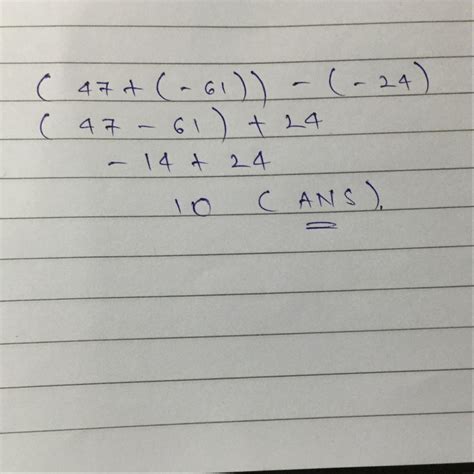 ( 47 + ( - 61)) - ( - 24)
( 47 - 61 ) + 24
- 14 + 24
10 ( ANS ).